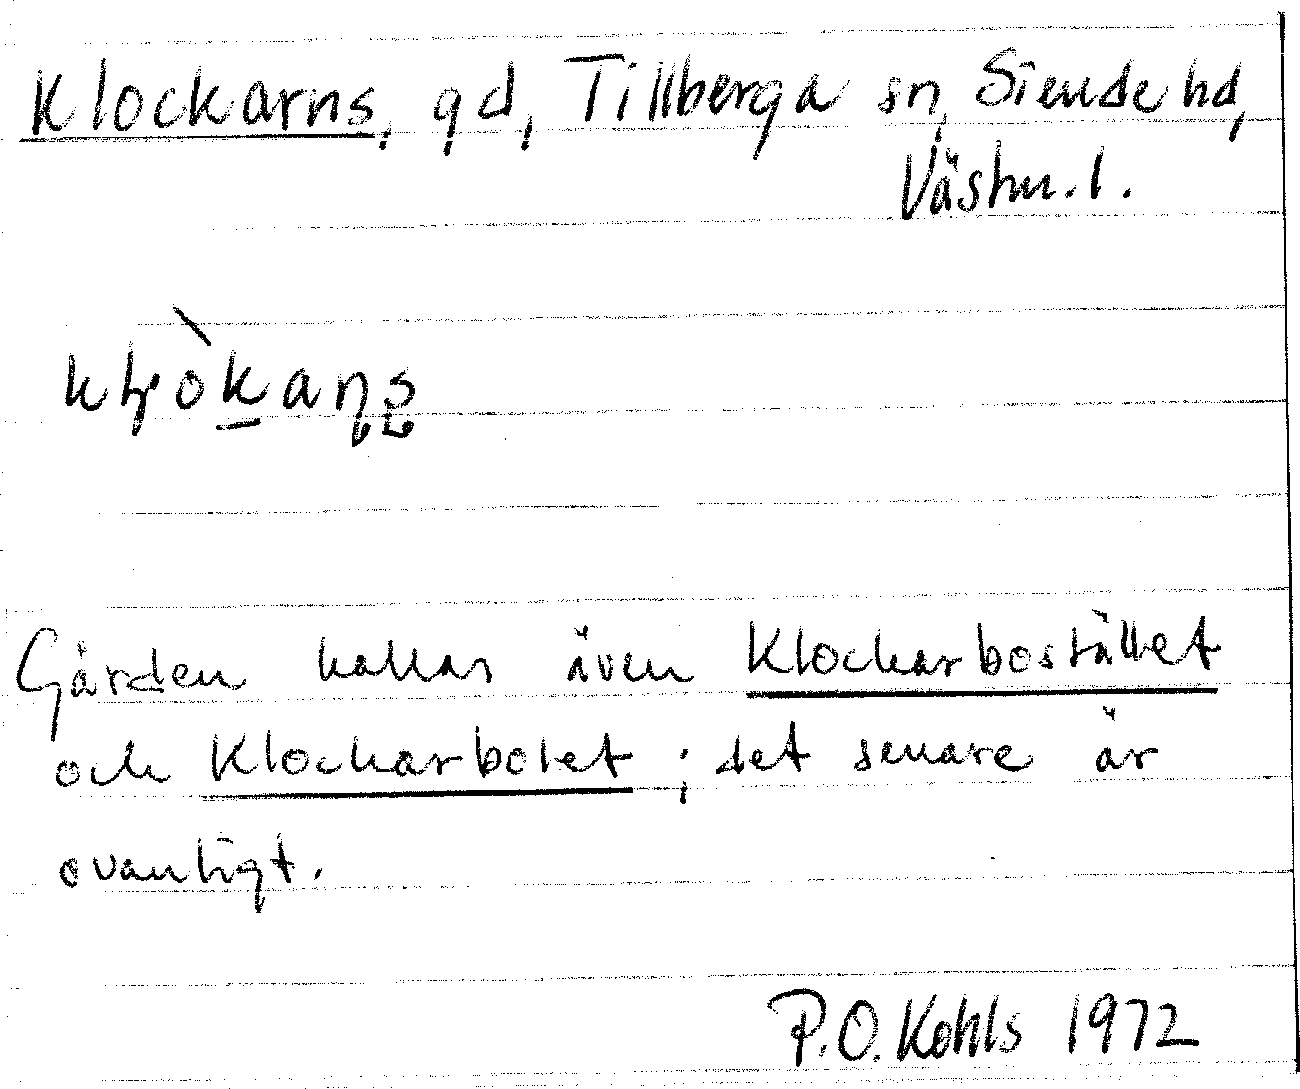 Klockarns, gd, Tillberga sn, Siende hd,
Västm. l.
Gården kallas även Klockarbostället
och Klockarbolet ; det senare är
ovanligt.
P.O. Kohls 1972